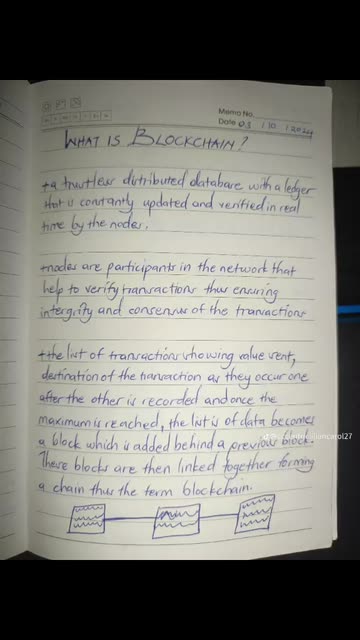 Memo No.
Date 03 / 10 / 2024
WHAT IS BLOCKCHAIN?
+a trustless distributed database with a ledger
that is constantly updated and verified in real
time by the nodes.
+nodes are participants in the network that
help to verify transactions thus ensuring
intergrity and consensus of the transactions
+the list of transactions showing value sent,
destination of the transaction as they occur one
after the other is recorded and once the
maximum is reached, the list is of data becomes
a block which is added behind a previous block.
These blocks are then linked together forming
a chain thus the term blockchain.